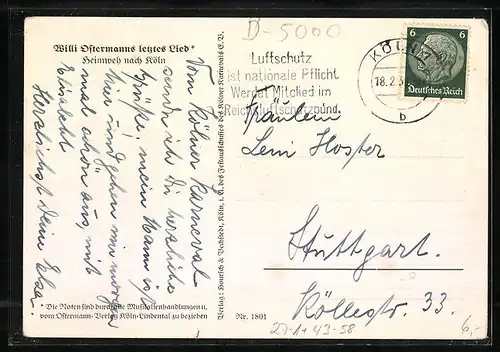 D-5000
Willi Ostermanns letztes Lied*
Heimweh nach Köln
Vom Kölner Karneval
sende ich Dir herzliche
Grüße, mein Mann ist
hier und gehen wir morgen
mal schön aus, mit
Herzlichst Deine Elsa.
* Die Noten sind durch alle Musikalienhandlungen u.
vom Ostermann-Verlag Köln-Lindental zu beziehen
Verlag: Hoursch & Bechstedt, Köln, i. A. des Festausschusses des Kölner Karnevals E. V.
Nr. 1801
Luftschutz
ist nationale Pflicht.
Werdet Mitglied im
Reichsluftschutzbund.
KÖLN
18.2.3
b
6 6
Deutsches Reich
Fräulein
Leni Hoster
Stuttgart.
Köllestr. 33.
27-1+43-58
6,-